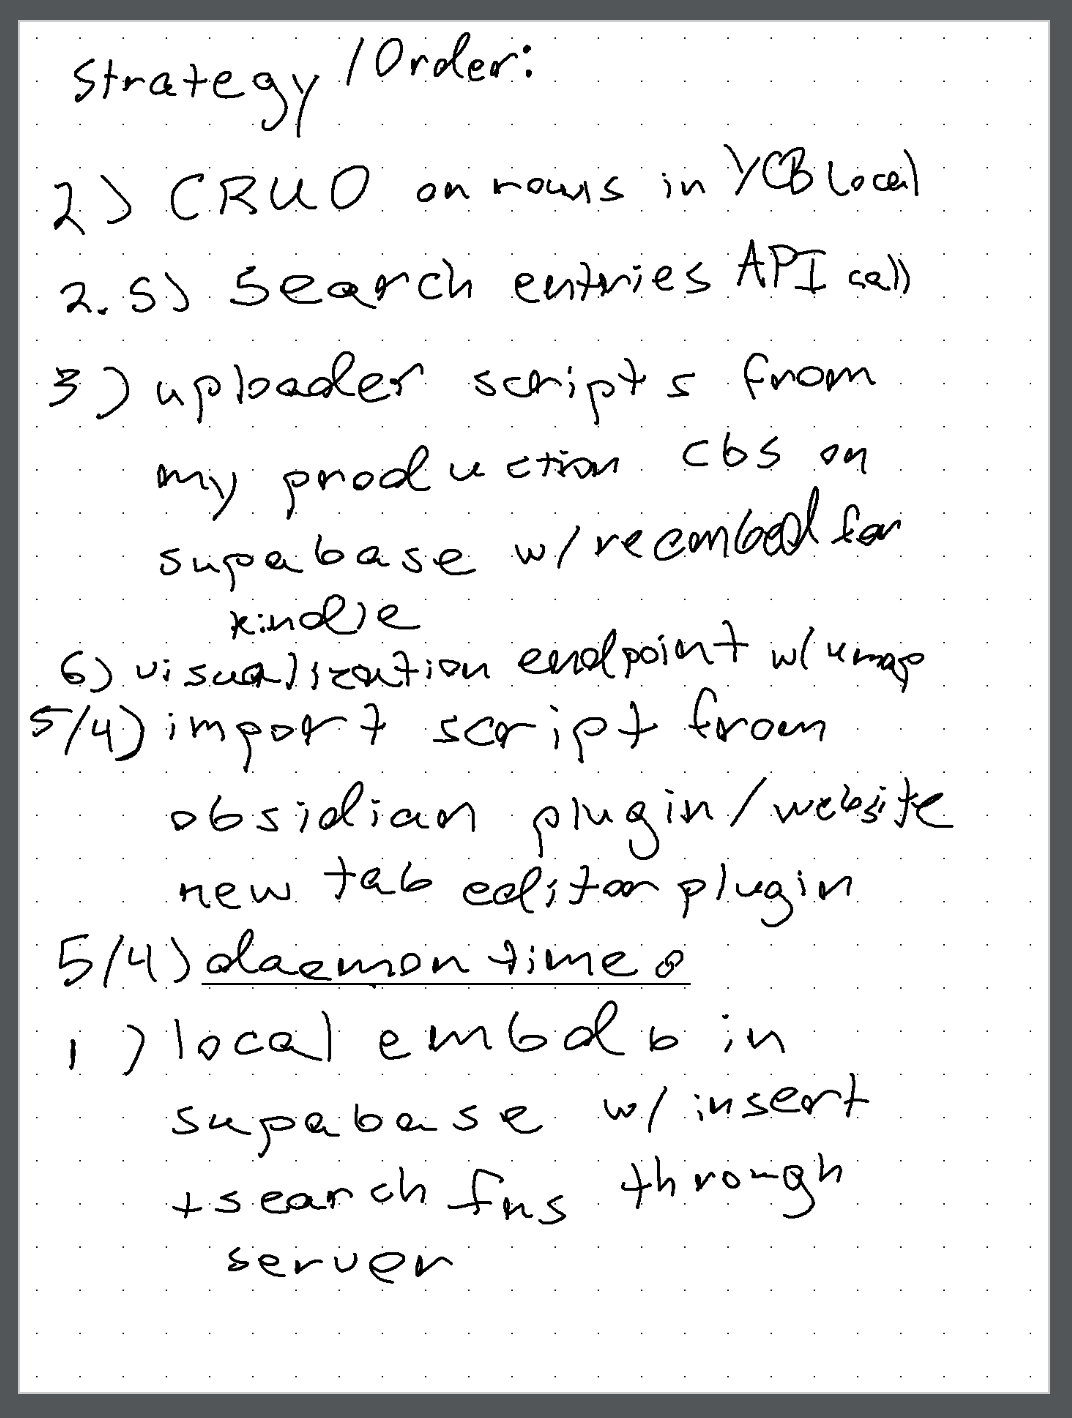 Strategy / Order:
2) CRUD on rows in YCB Local
2.5) Search entries API call
3) uploader scripts from
my production cbs on
supabase w/ reembed for
kindle
6) visualization endpoint w/ umap
5/4) import script from
obsidian plugin/website
new tab editor plugin
5/4) daemon time
1) local emb db in
supabase w/ insert
+ search fns through
server